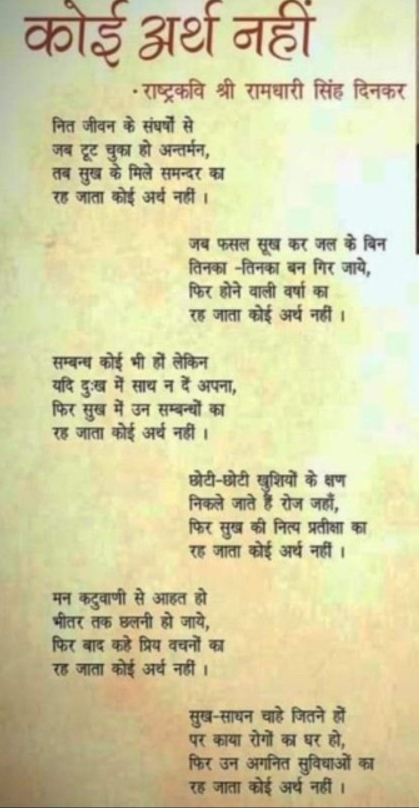 कोई अर्थ नहीं
· राष्ट्रकवि श्री रामधारी सिंह दिनकर
नित जीवन के संघर्षों से
जब टूट चुका हो अन्तर्मन,
तब सुख के मिले समन्दर का
रह जाता कोई अर्थ नहीं ।
जब फसल सूख कर जल के बिन
तिनका -तिनका बन गिर जाये,
फिर होने वाली वर्षा का
रह जाता कोई अर्थ नहीं ।
सम्बन्ध कोई भी हों लेकिन
यदि दुःख में साथ न दें अपना,
फिर सुख में उन सम्बन्धों का
रह जाता कोई अर्थ नहीं ।
छोटी-छोटी खुशियों के क्षण
निकले जाते हैं रोज जहाँ,
फिर सुख की नित्य प्रतीक्षा का
रह जाता कोई अर्थ नहीं ।
मन कटुवाणी से आहत हो
भीतर तक छलनी हो जाये,
फिर बाद कहे प्रिय वचनों का
रह जाता कोई अर्थ नहीं ।
सुख-साधन चाहे जितने हों
पर काया रोगों का घर हो,
फिर उन अगनित सुविधाओं का
रह जाता कोई अर्थ नहीं ।